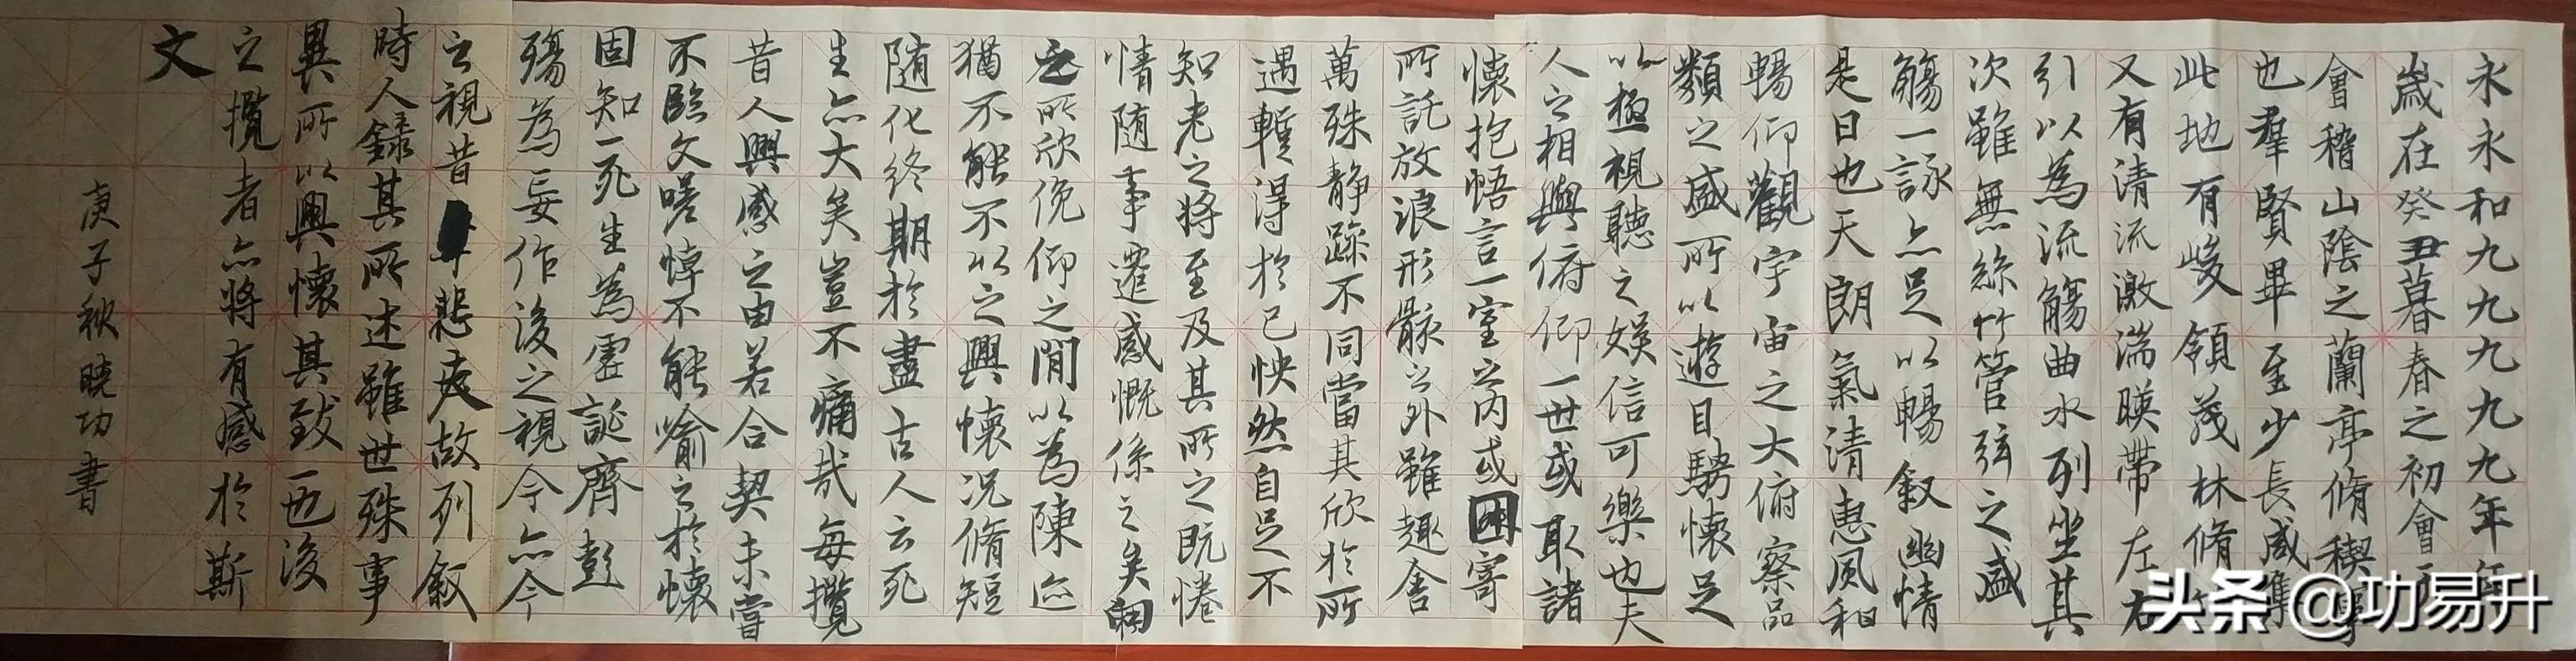 永永和九九九九九年年
歲在癸丑暮春之初會于
會稽山陰之蘭亭脩稧事
也羣賢畢至少長咸集
此地有峻領茂林脩
又有清流激湍暎帶左右
引以為流觴曲水列坐其
次雖無絲竹管弦之盛
觴一詠亦足以暢叙幽情
是日也天朗氣清惠風和
暢仰觀宇宙之大俯察品
類之盛所以遊目騁懷足
以極視聽之娛信可樂也夫
人之相與俯仰一世或取諸
懷抱悟言一室之内或因寄
所託放浪形骸之外雖趣舍
萬殊静躁不同當其欣於所
遇暫得於己怏然自足不
知老之將至及其所之既惓
情隨事遷感慨係之矣向
之所欣俛仰之閒以為陳迹
猶不能不以之興懷況脩短
隨化終期於盡古人云死
生亦大矣豈不痛哉每攬
昔人興感之由若合契未嘗
不臨文嗟悼不能喻之於懷
固知一死生為虛誕齊彭
殤為妄作後之視今亦今
之視昔悲夫故列叙
時人錄其所述雖世殊事
異所以興懷其致一也後
之攬者亦將有感於斯
文
庚子秋曉功書
头条 @功易升